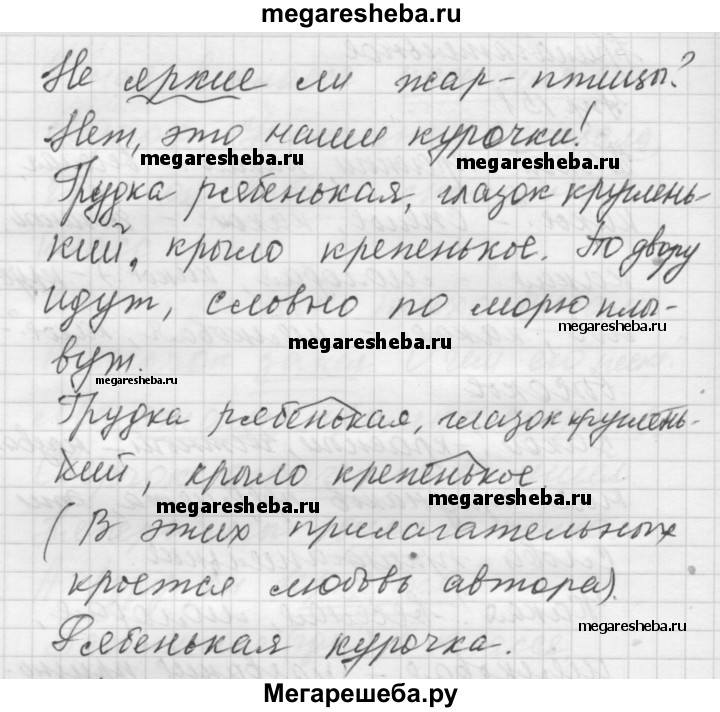 megaresheba.ru
Не яркие ли жар-птицы?
Нет, это наши курочки!
megaresheba.ru megaresheba.ru
Грудка рябенькая, глазок круглень-
кий, крыло крепенькое. По двору
идут, словно по морю плы-
megaresheba.ru megaresheba.ru
вут.
megaresheba.ru
Грудка рябенькая, глазок круглень-
кий, крыло крепенькое
megaresheba.ru megaresheba.ru
(В этих прилагательных
кроется любовь автора).
megaresheba.ru
Рябенькая курочка.
Мегарешеба.ру